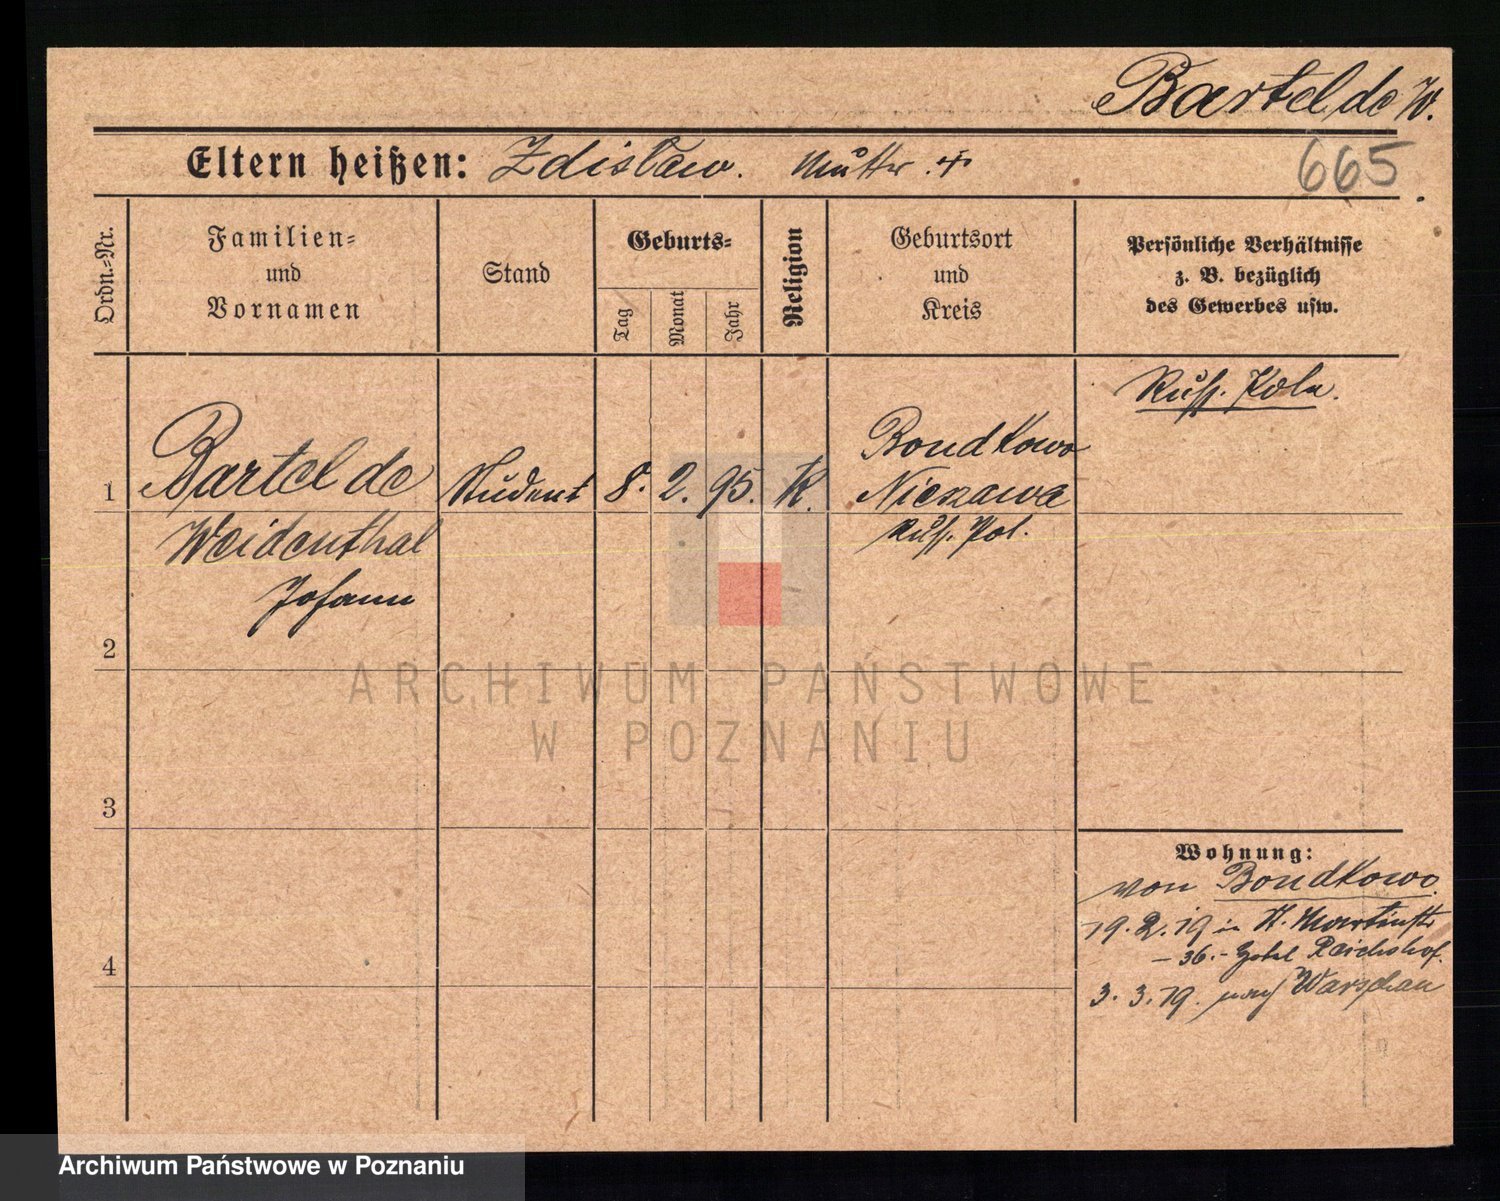 Bartel de W.
Eltern heißen: Zdislaw. Mutter †
665
Ordn.=Nr.
Familien=
und
Vornamen
Stand
Geburts=
Tag
Monat
Jahr
Religion
Geburtsort
und
Kreis
Persönliche Verhältnisse
z. B. bezüglich
des Gewerbes usw.
Russ. Pole.
1 Bartel de Student 8. 2. 95. K. Bondkowo
Weidenthal Niezawa
Johann Russ. Pol.
2
3
4
Wohnung:
von Bondkowo.
19.2.19 in St. Martinstr
– 36. – Hotel Reichshof.
3.3.19. nach Warschau
ARCHIWUM PAŃSTWOWE
W POZNANIU
Archiwum Państwowe w Poznaniu